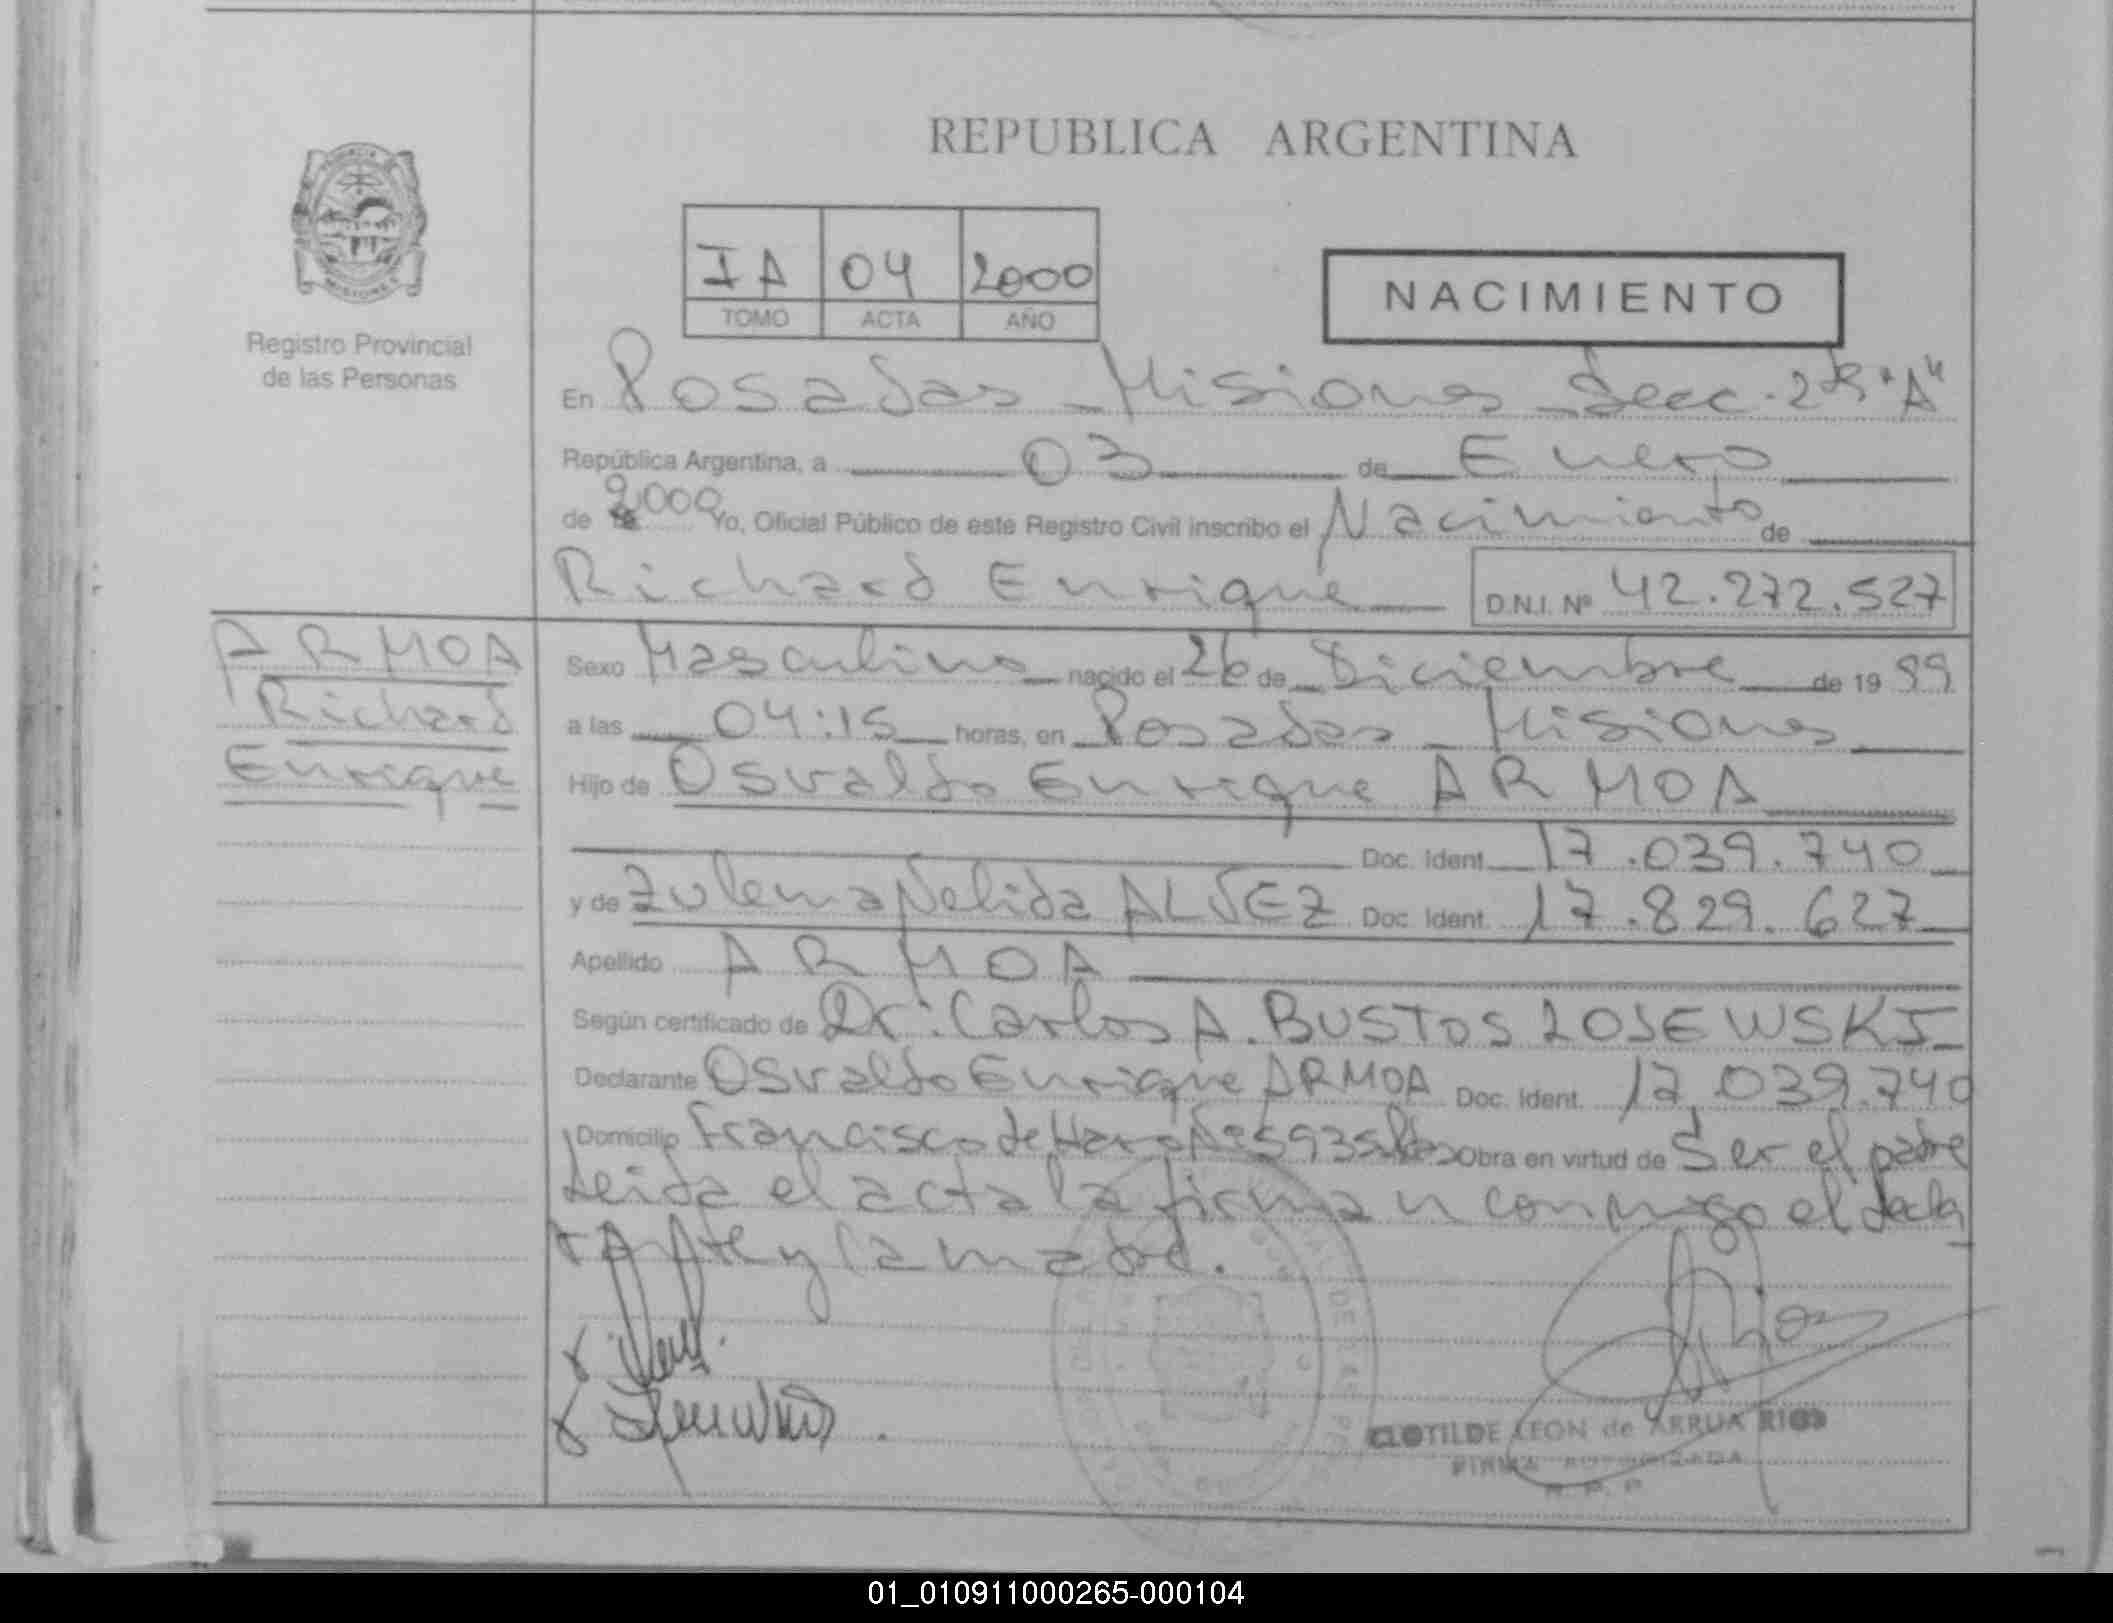 REPUBLICA ARGENTINA
IA 04 2000
TOMO ACTA AÑO
NACIMIENTO
Registro Provincial
de las Personas
En Posadas - Misiones - Secc. 2da "A"
República Argentina, a 03 de Enero
de 2000 Yo, Oficial Público de este Registro Civil inscribo el Nacimiento de
Richard Enrique D.N.I. Nº 42.272.527
ARMOA
Richard
Enrique
Sexo Masculino nacido el 26 de Diciembre de 19 99
a las 04:15 horas, en Posadas - Misiones
Hijo de Osvaldo Enrique ARMOA
Doc. Ident. 17.039.740
y de Zulema Nelida ALVEZ Doc. Ident. 17.829.627
Apellido ARMOA
Según certificado de Dr: Carlos A. BUSTOS LOSEWSKI
Declarante Osvaldo Enrique ARMOA Doc. Ident. 17.039.740
Domicilio Francisco de Haro Nº 5935 Obra en virtud de Ser el padre
Leida el acta la firman conmigo el decla
rante y la madre.
CLOTILDE LEON de ARRUA RIOS
FIRMA AUTORIZADA
R. P. P.
01_010911000265-000104